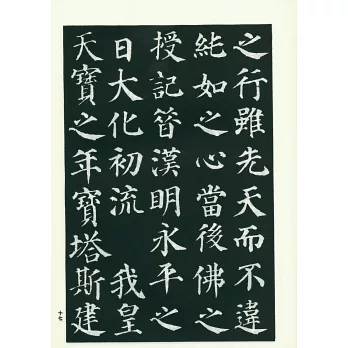 之行雖先天而不違
純如之心當後佛之
授記昔漢明永平之
日大化初流 我皇
天寶之年寶塔斯建
十七